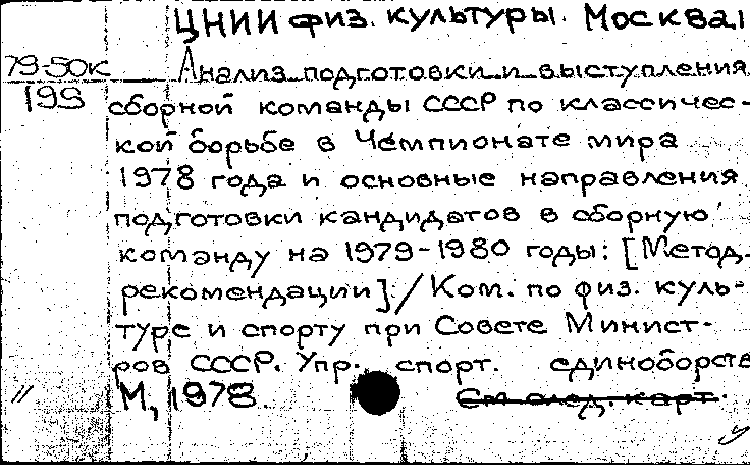 ЦНИИ физ. культуры. Москва
79-50к Анализ подготовки и выступления
199 сборной команды СССР по классичес-
кой борьбе в Чемпионате мира
1978 года и основные направления
подготовки кандидатов в сборную
команду на 1979-1980 годы: [Метод.
рекомендации]. / Ком. по физ. куль-
туре и спорту при Совете Минист-
ров СССР. Упр. спорт. единоборств
М, 1978
См след. карт.